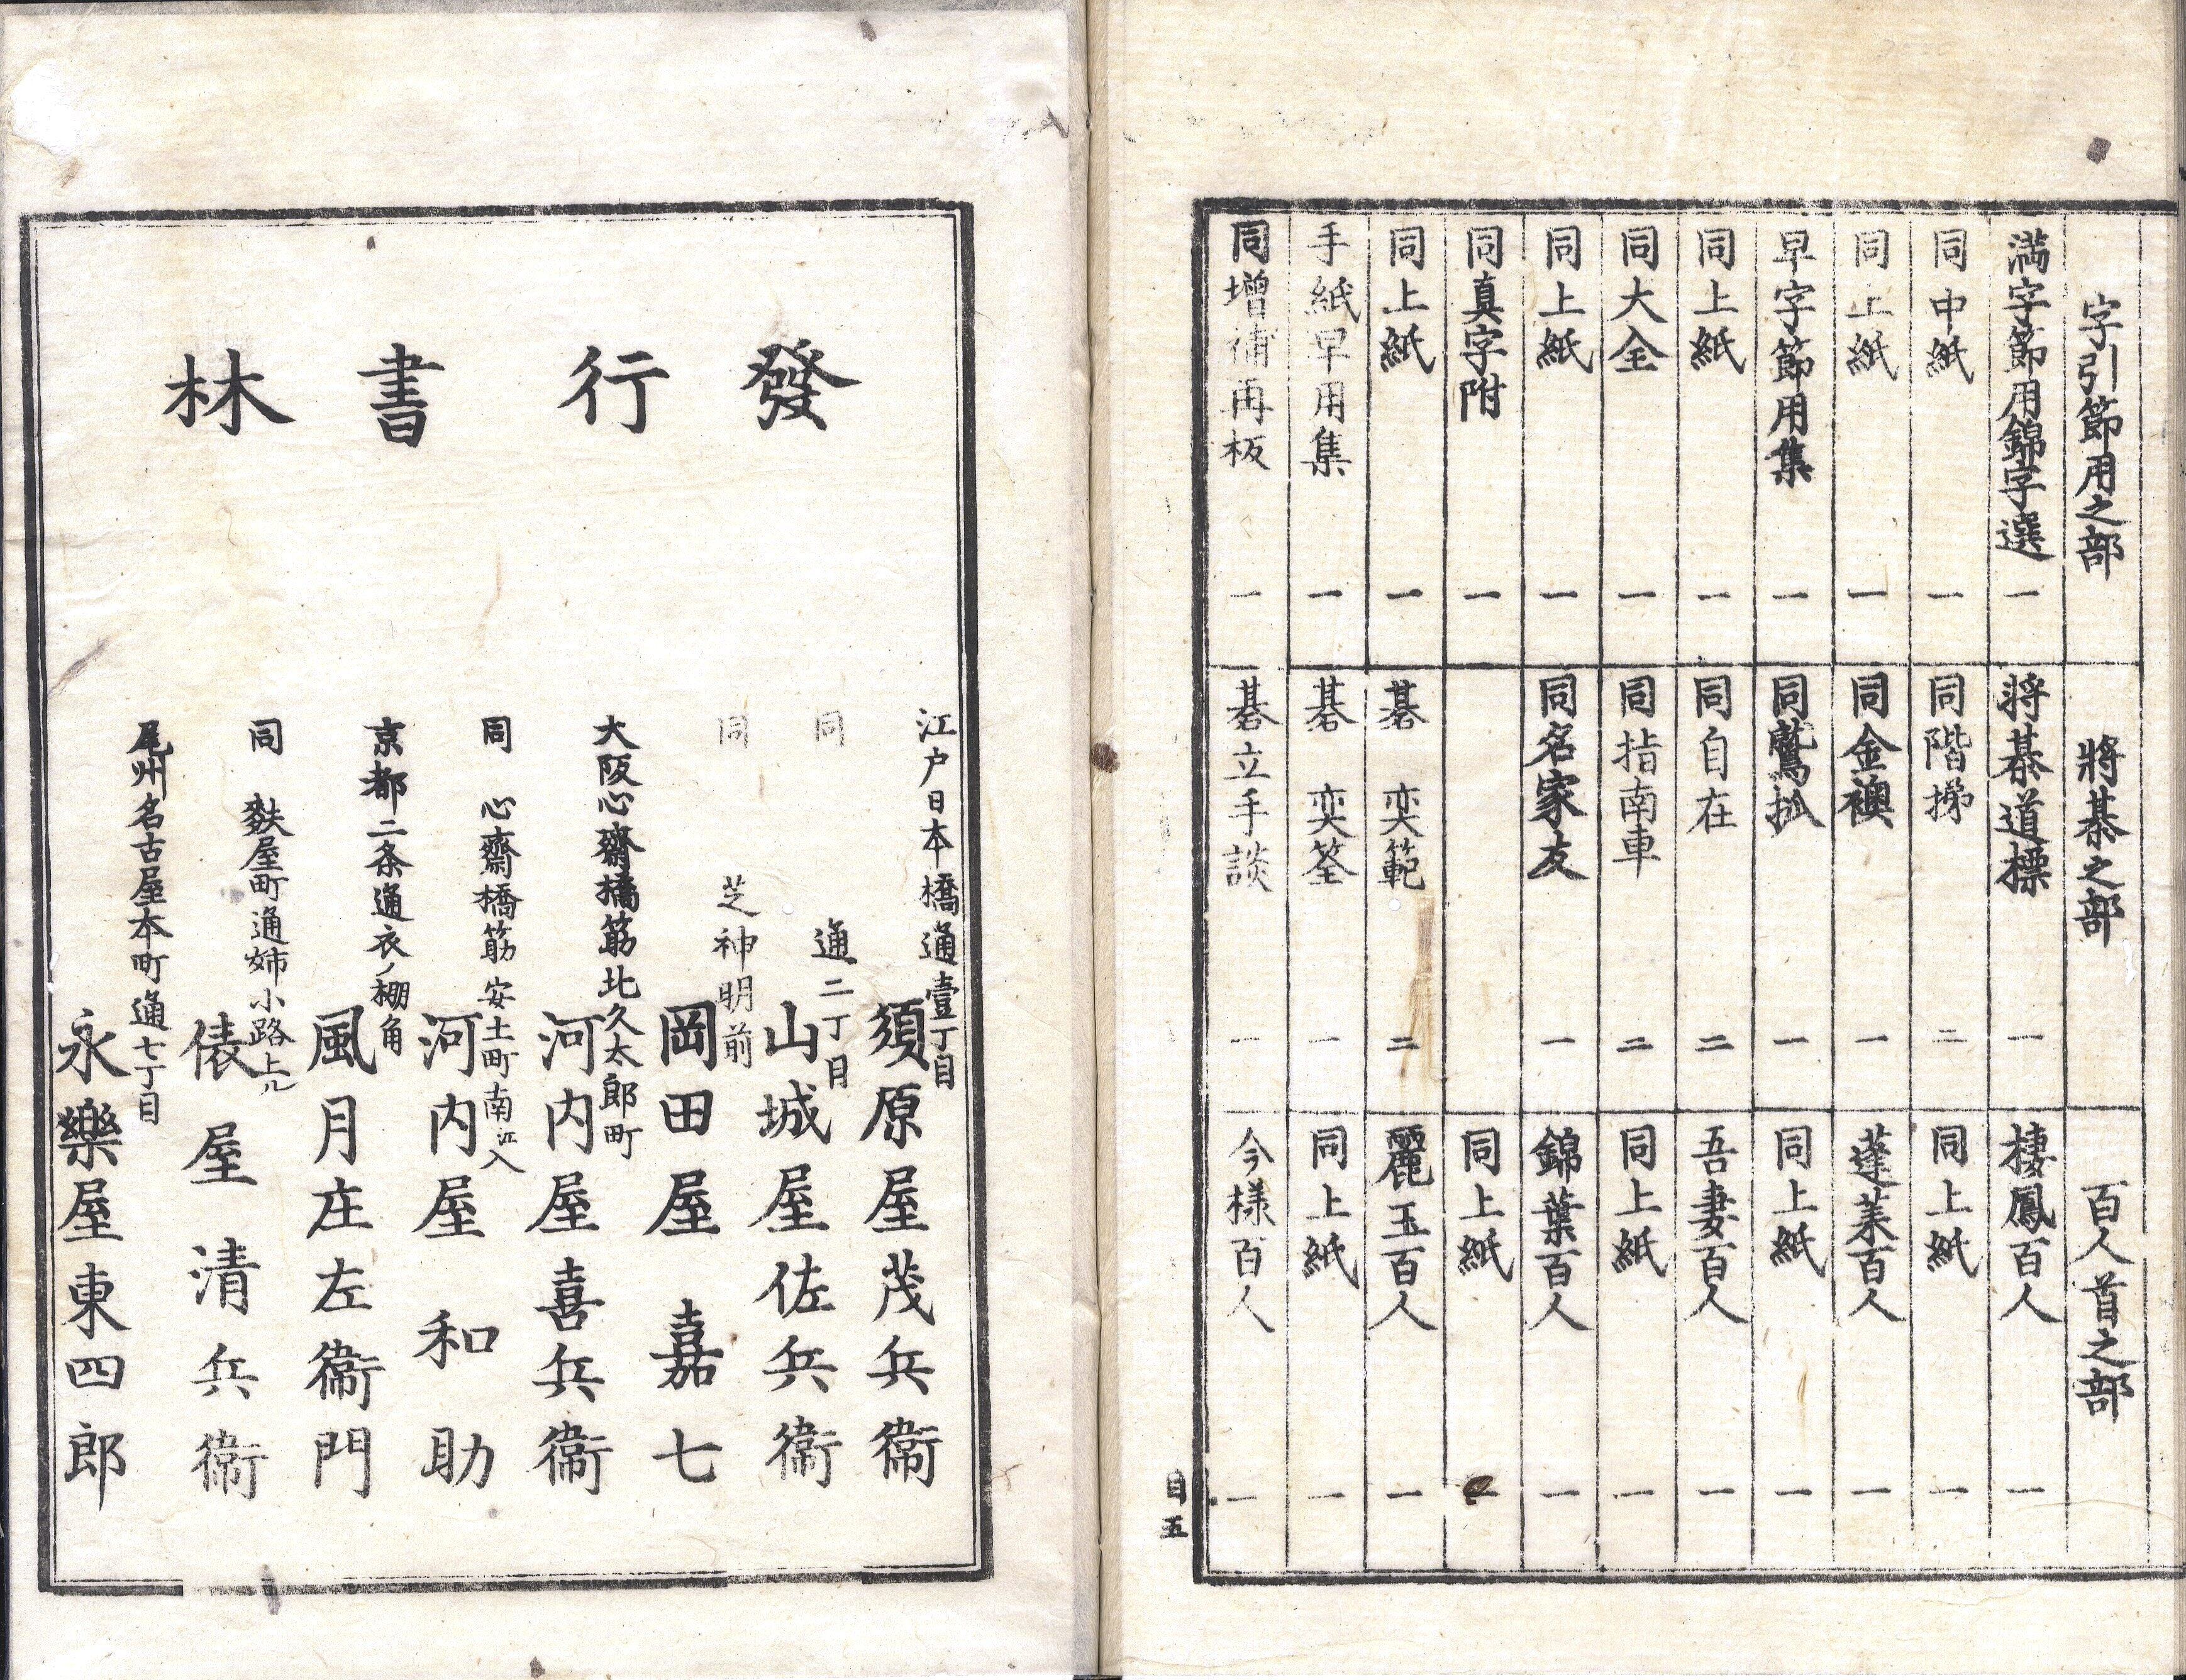 字引節用之部
満字節用錦字選 一
同中紙 一
同上紙 一
早字節用集 一
同上紙 一
同大全 一
同上紙 一
同真字附 一
同上紙 一
手紙早用集 一
同増補再板 一
將棊之部
將棊道標 一
同階梯 二
同金襖 一
同鷙抓 一
同自在 二
同指南車 二
同名家友 一
碁 奕範 二
碁 奕筌 一
碁立手談 一
百人首之部
棲鳳百人 一
同上紙 一
蓬莱百人 一
同上紙 一
吾妻百人 一
同上紙 一
錦葉百人 一
同上紙 一
麗玉百人 一
同上紙 一
今様百人 一
目五
發行書林
江戸日本橋通壹丁目
須原屋茂兵衞
同 通二丁目
山城屋佐兵衞
同 芝神明前
岡田屋嘉七
大阪心齋橋筋北久太郎町
河内屋喜兵衞
同 心齋橋筋安土町南江入
河内屋和助
京都二条通衣ノ棚角
風月庄左衞門
同 麩屋町通姉小路上ル
俵屋清兵衞
尾州名古屋本町通七丁目
永樂屋東四郎